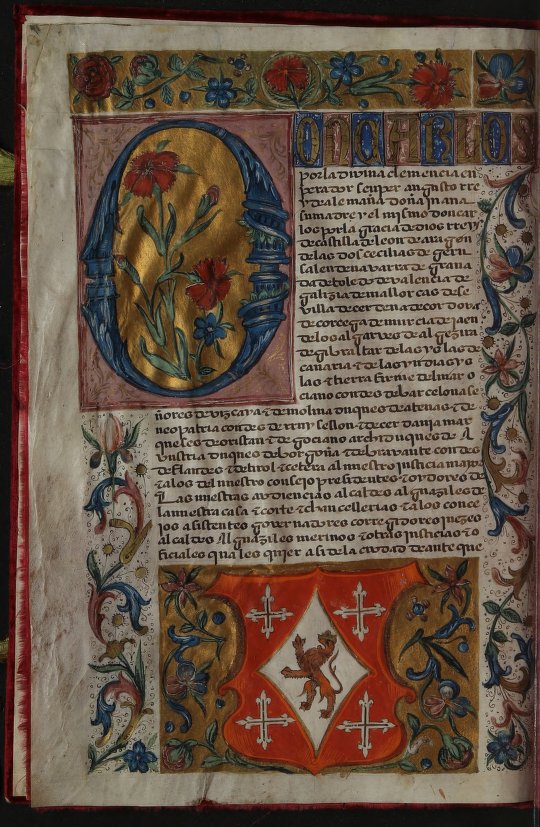 DON CARLOS
por la divina clemencia en
perador senper augusto rre
y de alemaña doña juana
su madre y el mismo don car
los por la gracia de dios rreyes
de castilla de leon de aragon
de las dos cecilias de geru
salen de navarra de grana
da de toledo de valencia de
galizia de mallorcas de se
villa de cerdena de cordova
de corcega de murcia de jaen
de los algarves de algezira
de gibraltar de las yslas de
canaria & de las yndias ys
las & tierra firme del mar o
ciano condes de barcelona se
ñores de vizcaya & de molina duques de atenas & de
neopatria condes de rruysellon & de cerdania mar
queses de oristan & de gociano archiduques de A
ustria duques de borgoña & de bravante condes
de flandes & de tirol & cetera al nuestro justicia mayor
& a los del nuestro consejo presidentes & oydores de
Las nuestras audiencias alcaldes alguaziles de
la nuestra casa & corte & chancellerias & a los conce
jos asistentes governadores corregidores juezes
alcaldes Alguaziles merinos & otras justicias & o
ficiales qualesquier asi de la ciudad de ante que